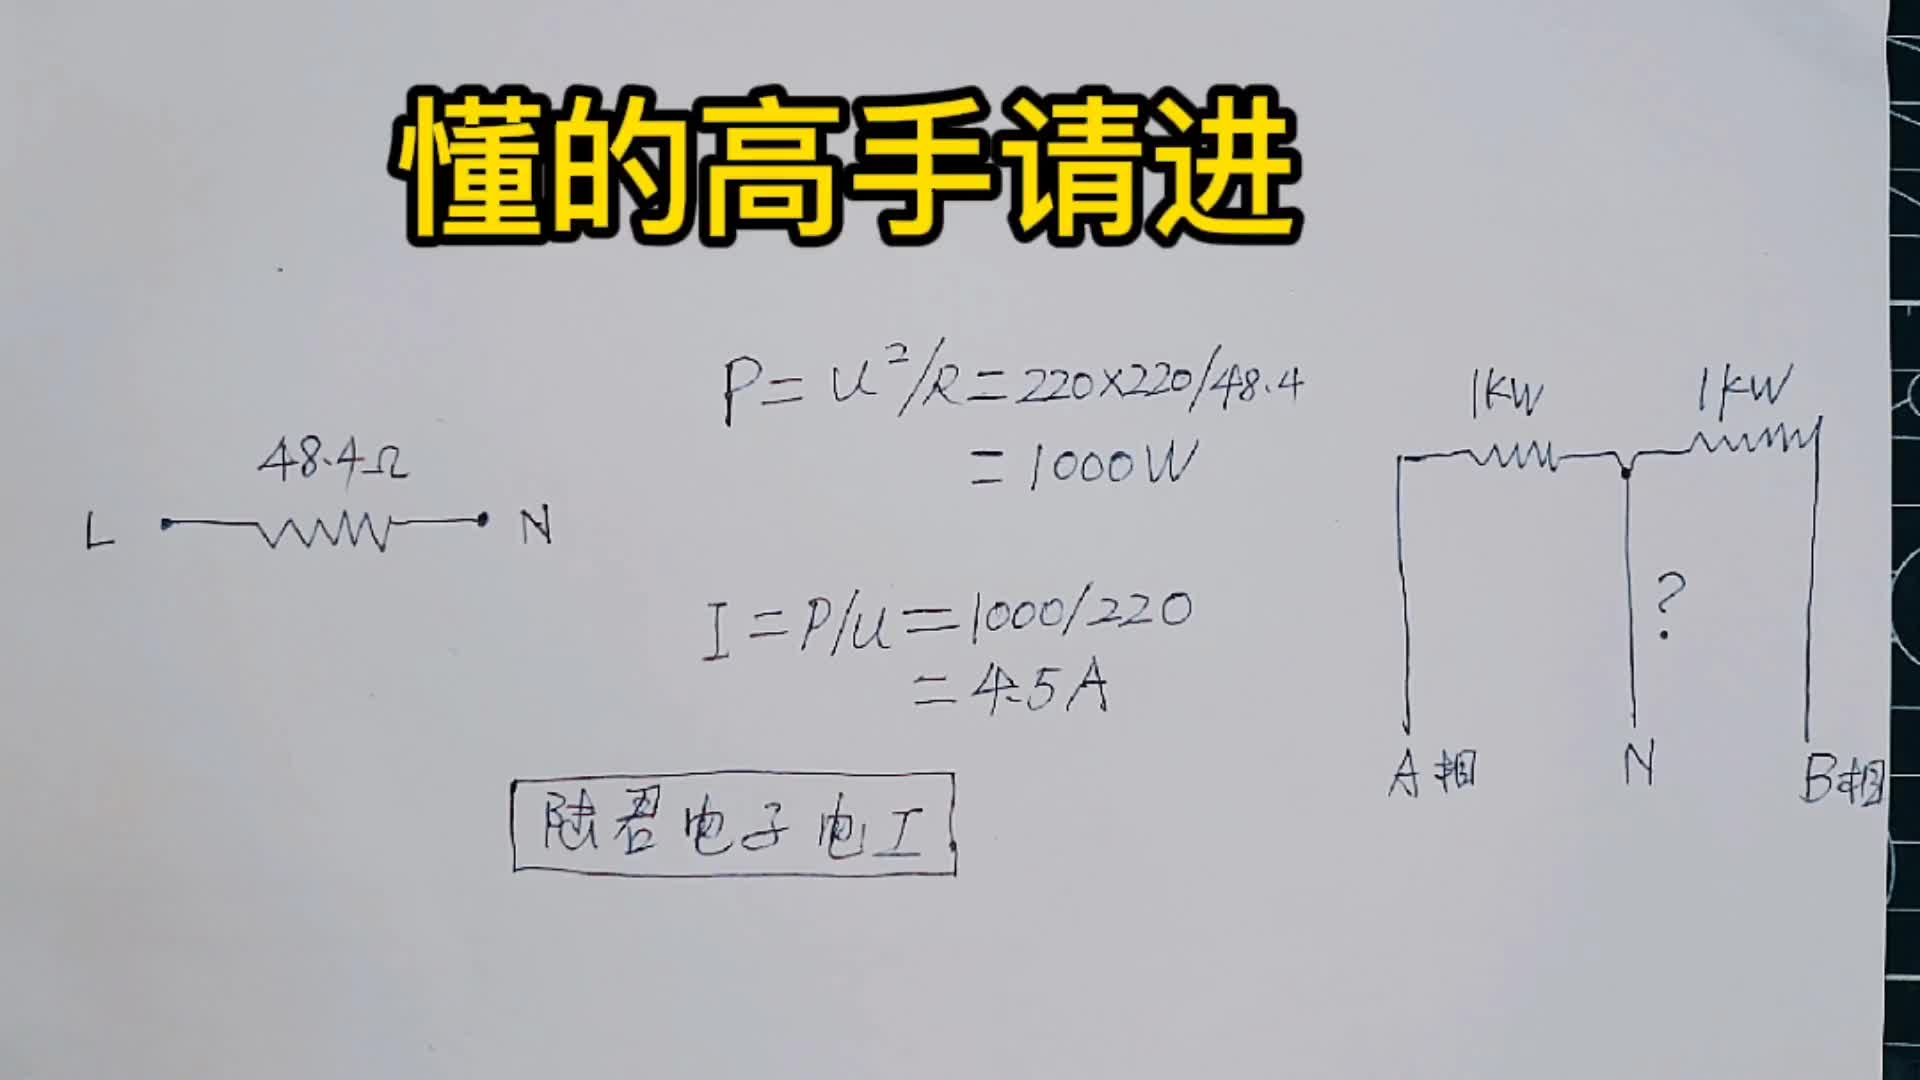 懂的高手请进
P=U²/R=220×220/48.4
=1000W
48.4Ω
L
N
I=P/U=1000/220
=4.5A
陆君电子电工
1KW
1KW
?
A相
N
B相